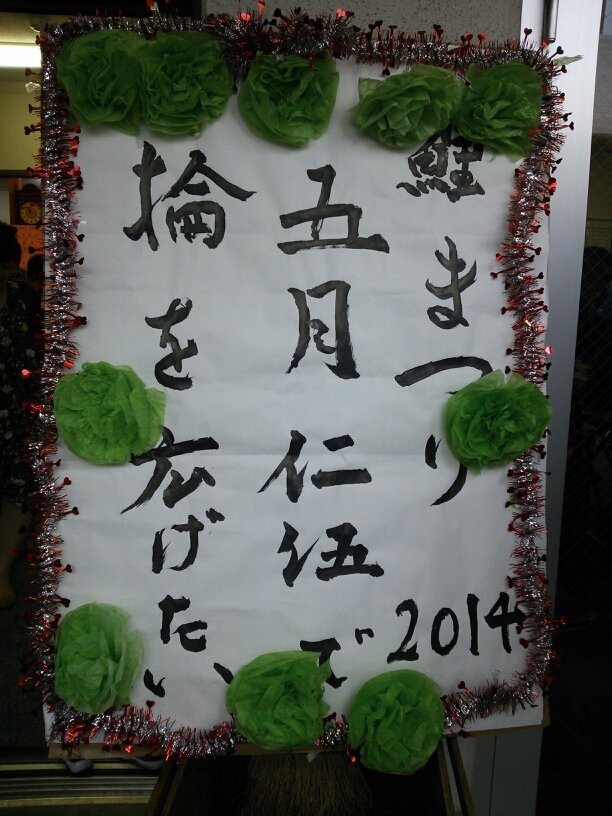 鮭まつり
2014
五月仁伍で
掄を広げたい